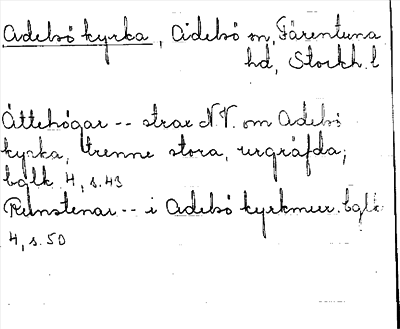 Adelsö kyrka, Adelsö sn, Färentuna
hd, Stockh. l
Ättehögar -- strax N.V. om Adelsö
kyrka, trenne stora, urgräfda;
bglk 4, s. 43
Runstenar -- i Adelsö kyrkmur. bglk
4, s. 50